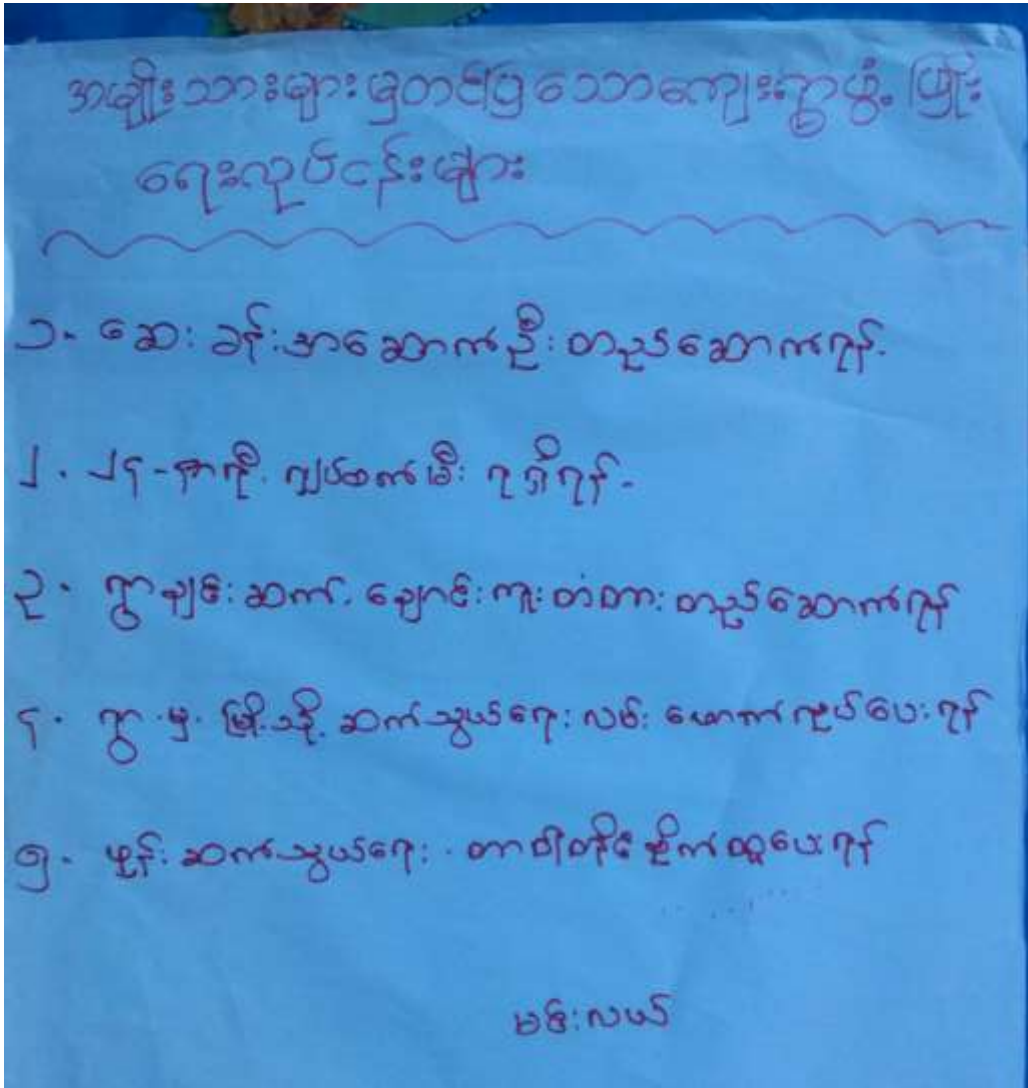 အမျိုးသားများမှတင်ပြသောကျေးရွာဖွံ့ဖြိုး
ရေးလုပ်ငန်းများ
၁. ဆေးခန်းအဆောက်ဦးတည်ဆောက်ရန်.
၂. ၂၄-နာရီ လျှပ်စက်မီး ရရှိရန်-
၃. ရွာချင်းဆက်. ချောင်းကူးတံတား တည်ဆောက်ရန်
၄. ရွာ.မှ. မြို့သို့ ဆက်သွယ်ရေးလမ်း ဖောက်လုပ်ပေးရန်
၅. ဖုန်းဆက်သွယ်ရေး. တာဝါတိုင်စိုက်ထူပေးရန်
မင်းလယ်